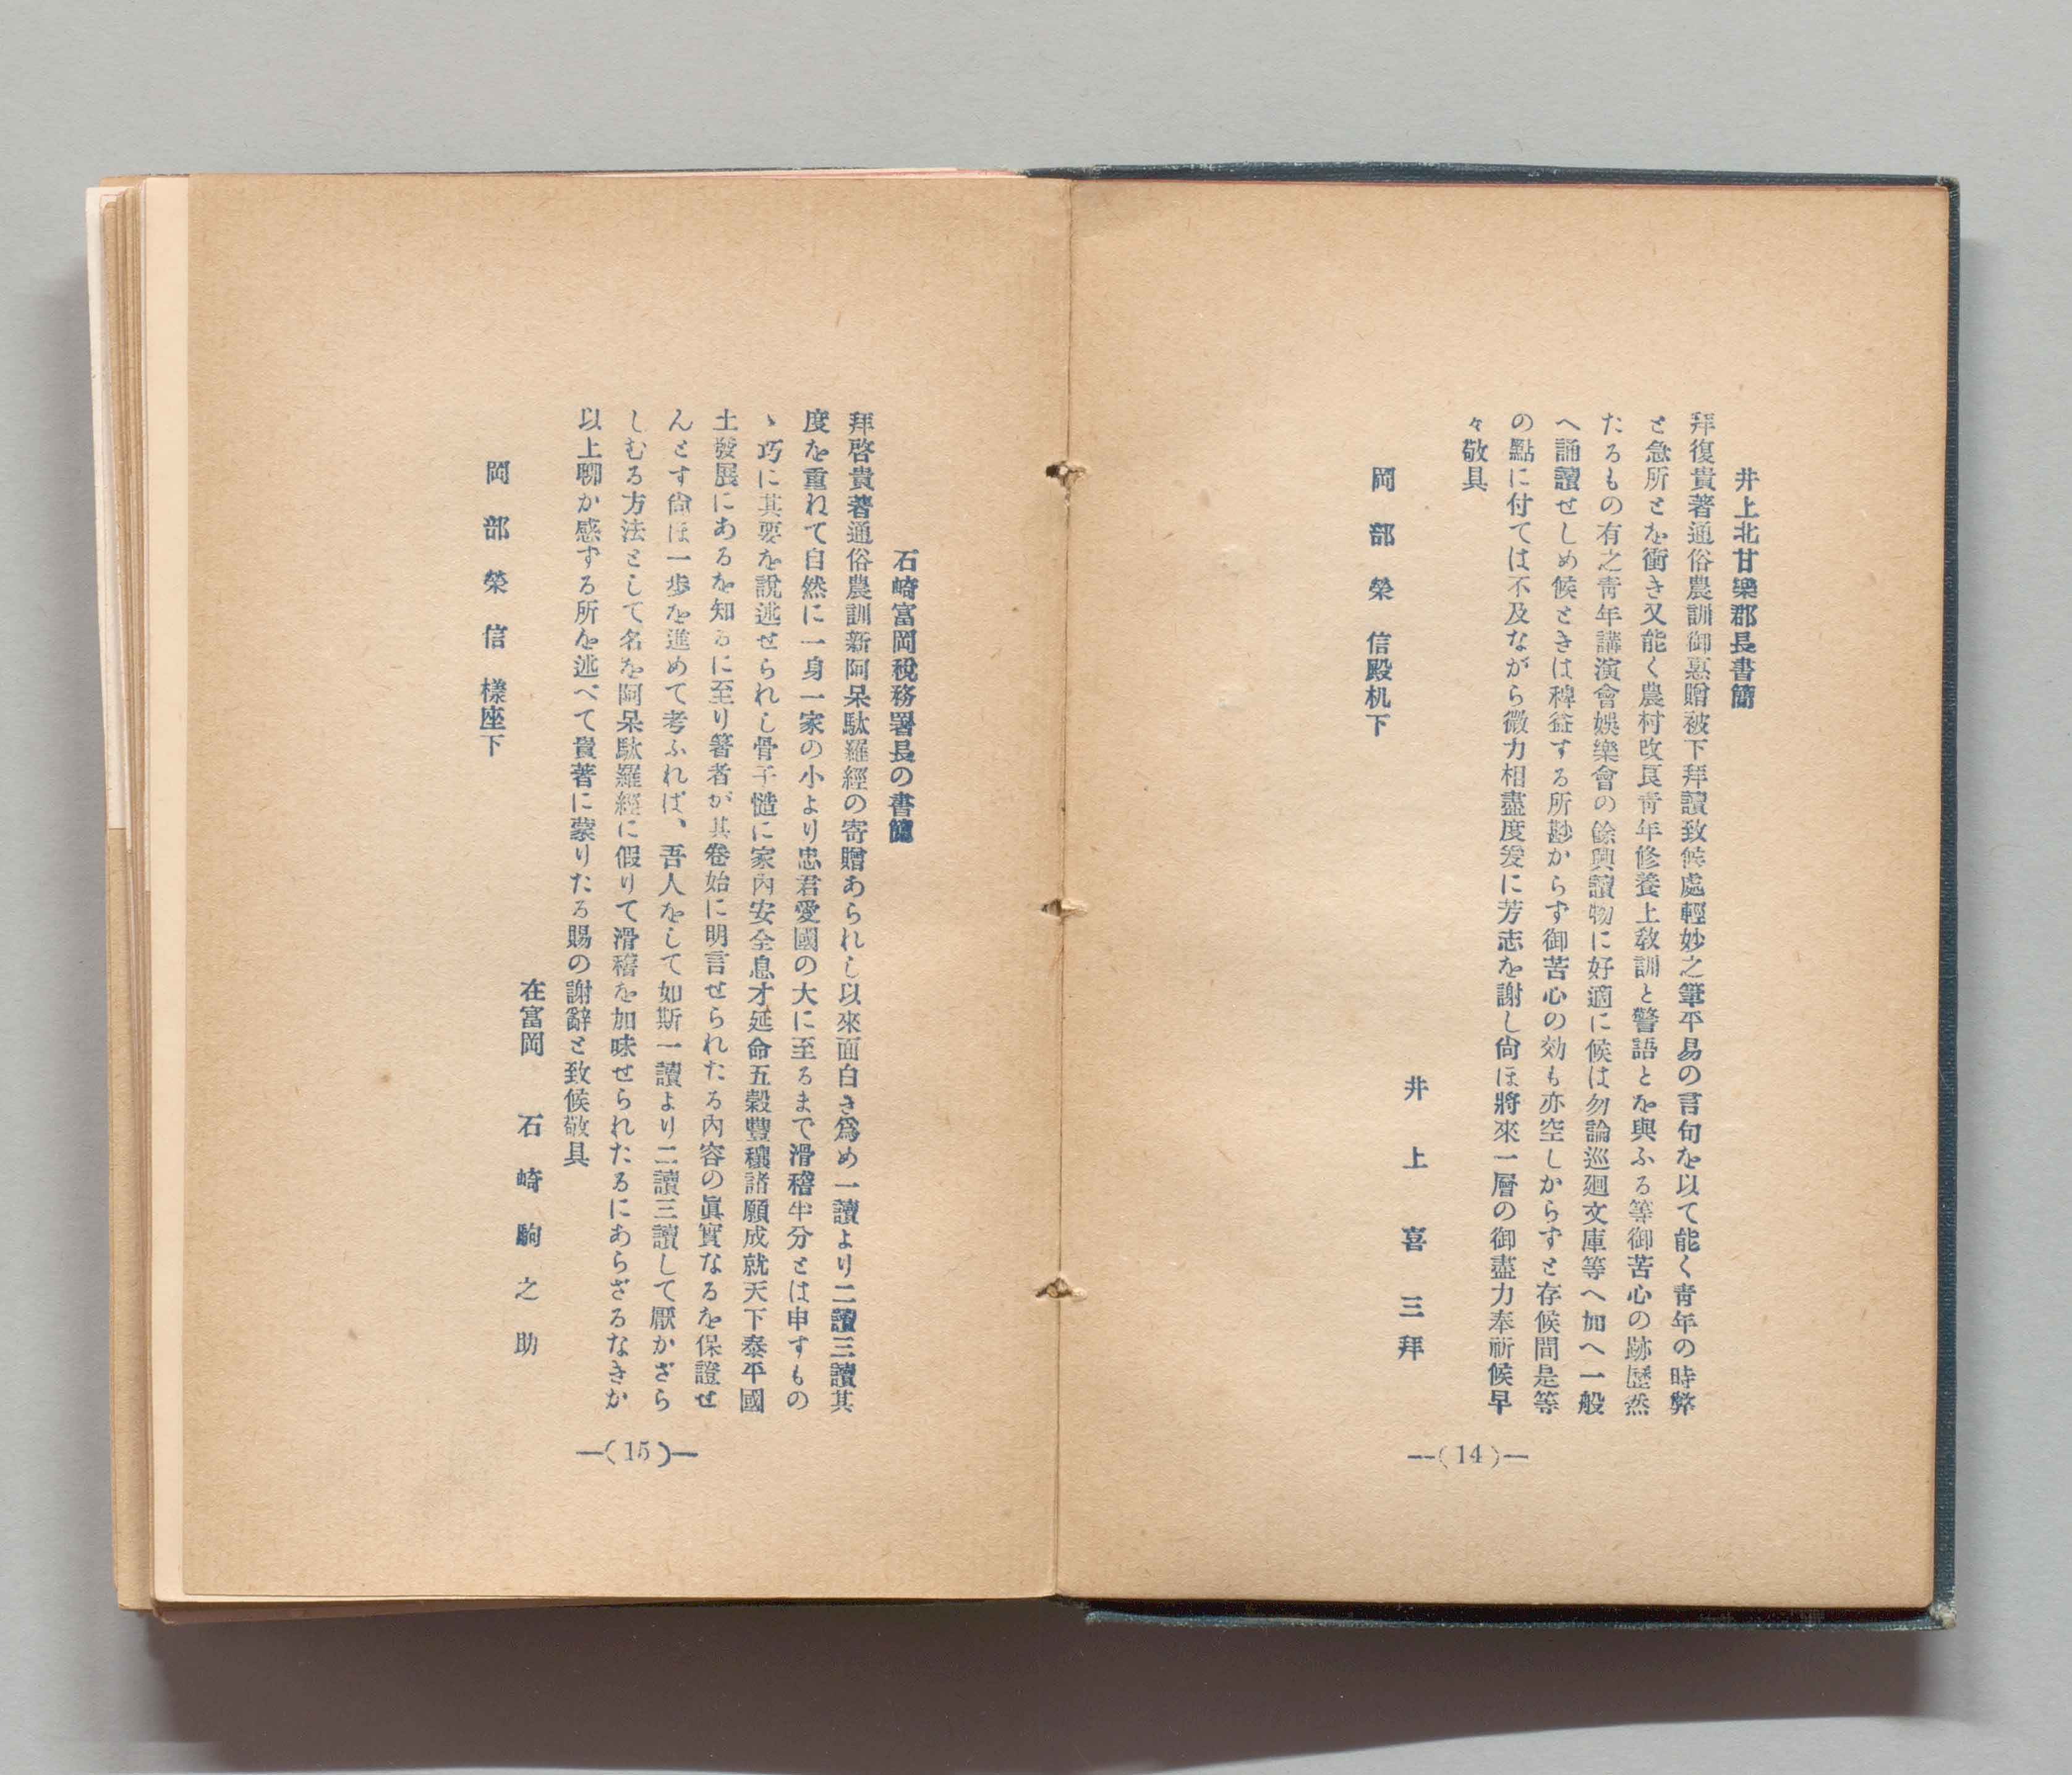 井上北甘樂郡長書簡
拜復貴著通俗農訓御惠贈被下拜讀致候處輕妙之筆平易の言句を以て能く靑年の時弊
と急所とを衝き又能く農村改良靑年修養上敎訓と警語とを與ふる等御苦心の跡歷然
たるもの有之靑年講演會娛樂會の餘興讀物に好適に候は勿論巡廻文庫等へ加へ一般
へ誦讀せしめ候ときは稗益する所尠からず御苦心の効も亦空しからずと存候間是等
の點に付ては不及ながら微力相盡度爰に芳志を謝し尙ほ將來一層の御盡力奉祈候早
々敬具
井上喜三拜
岡部榮信殿机下
―(14)―
石崎富岡稅務署長の書簡
拜啓貴著通俗農訓新阿呆駄羅經の寄贈あられし以來面白き爲め一讀より二讀三讀其
度を重ねて自然に一身一家の小より忠君愛國の大に至るまで滑稽半分とは申すもの
ゝ巧に其要を說述せられし骨子慥に家內安全息才延命五穀豐穰諸願成就天下泰平國
土發展にあるを知るに至り著者が其卷始に明言せられたる內容の眞實なるを保證せ
んとす尙ほ一步を進めて考ふれば、吾人をして如斯一讀より二讀三讀して厭かざら
しむる方法として名を阿呆駄羅經に假りて滑稽を加味せられたるにあらざるなきか
以上聊か感ずる所を述べて貴著に蒙りたる賜の謝辭と致候敬具
在富岡 石崎駒之助
岡部榮信樣座下
―(15)―